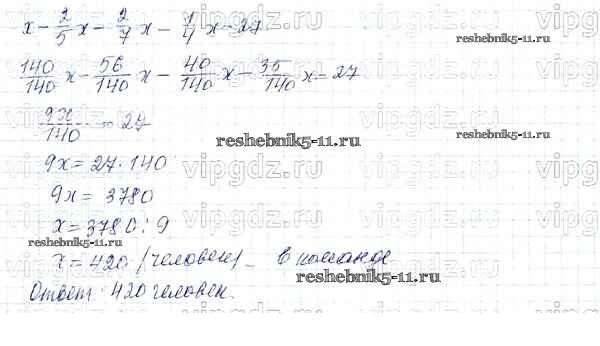 x - 2/5 x - 2/7 x - 1/4 x = 27
140/140 x - 56/140 x - 40/140 x - 35/140 x = 27
9x/140 = 27
9x = 27 · 140
9x = 3780
x = 3780 : 9
x = 420 (человек) - в команде
Ответ: 420 человек.
vipgdz.ru
reshebnik5-11.ru
reshebnik5-11.ru
reshebnik5-11.ru
reshebnik5-11.ru
reshebnik5-11.ru